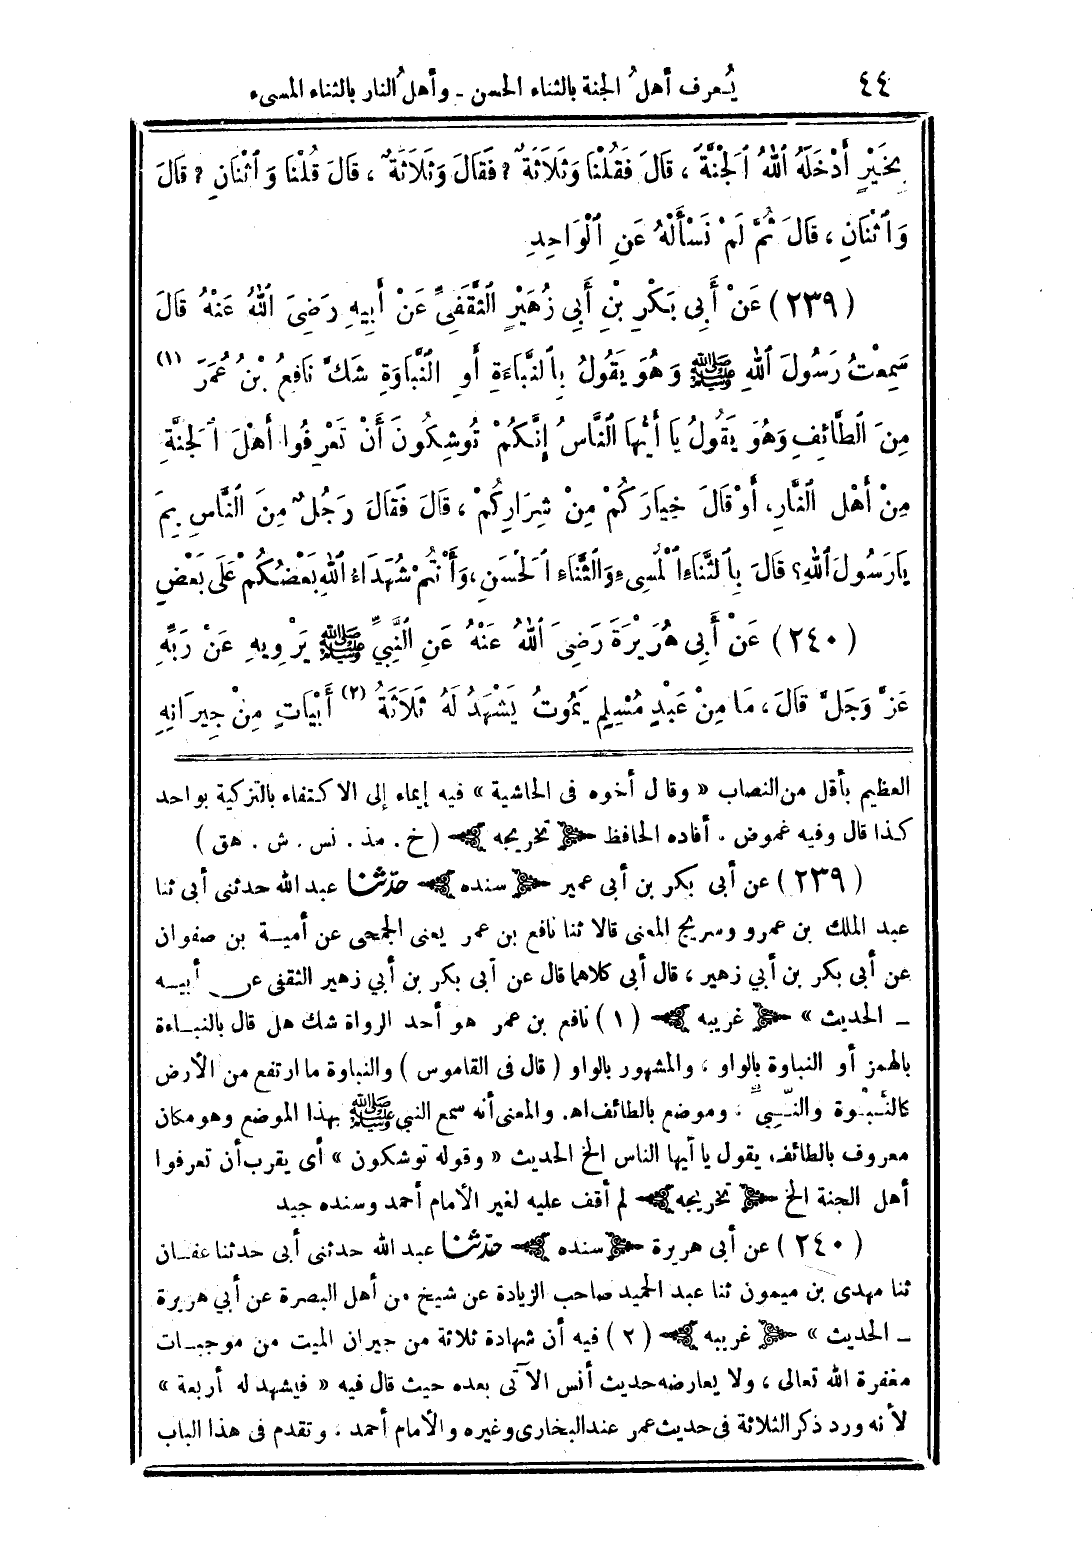 ٤٤ يُعرف أهلُ الجنة بالثناء الحسن - وأهلُ النار بالثناء المسىء
بِخَيْرٍ أَدْخَلَهُ ٱللهُ ٱلْجَنَّةَ ، قَالَ فَقُلْنَا وَثَلَاثَةٌ ؟ فَقَالَ وَثَلَاثَةٌ ، قَالَ قُلْنَا وَٱثْنَانِ ؟ قَالَ
وَٱثْنَانِ ، قَالَ ثُمَّ لَمْ نَسْأَلْهُ عَنِ ٱلْوَاحِدِ
(٢٣٩) عَنْ أَبِى بَكْرِ بْنِ أَبِى زُهَيْرٍ ٱلثَّقَفِىِّ عَنْ أَبِيهِ رَضِىَ ٱللهُ عَنْهُ قَالَ
سَمِعْتُ رَسُولَ ٱللهِ ﷺ وَهُوَ يَقُولُ بِٱلنَّبَاءَةِ أَوِ ٱلنَّبَاوَةِ شَكَّ نَافِعُ بْنُ عُمَرَ (١)
مِنَ ٱلطَّائِفِ وَهُوَ يَقُولُ يَا أَيُّهَا ٱلنَّاسُ إِنَّكُمْ تُوشِكُونَ أَنْ تَعْرِفُوا أَهْلَ ٱلْجَنَّةِ
مِنْ أَهْلِ ٱلنَّارِ، أَوْ قَالَ خِيَارَكُمْ مِنْ شِرَارِكُمْ ، قَالَ فَقَالَ رَجُلٌ مِنَ ٱلنَّاسِ بِمَ
يَارَسُولَ ٱللهِ؟ قَالَ بِٱلثَّنَاءِ ٱلْمُسِىءِ وَٱلثَّنَاءِ ٱلْحَسَنِ ، وَأَنْتُمْ شُهَدَاءُ ٱللهِ بَعْضُكُمْ عَلَى بَعْضٍ
(٢٤٠) عَنْ أَبِى هُرَيْرَةَ رَضِىَ ٱللهُ عَنْهُ عَنِ ٱلنَّبِىِّ ﷺ يَرْوِيهِ عَنْ رَبِّهِ
عَزَّ وَجَلَّ قَالَ ، مَا مِنْ عَبْدٍ مُسْلِمٍ يَمُوتُ يَشْهَدُ لَهُ ثَلَاثَةُ (٢) أَبْيَاتٍ مِنْ جِيرَانِهِ
العظيم بأقل من النصاب « وقال أخوه فى الحاشية » فيه إيماء إلى الاكتفاء بالتزكية بواحد
كذا قال وفيه غموض . أفاده الحافظ تخريجه (خ . مذ . نس . ش . هق )
(٢٣٩) عن أبى بكر بن أبى عمير سنده حدّثنا عبد الله حدثنى أبى ثنا
عبد الملك بن عمرو وسريج المعنى قالا ثنا نافع بن عمر يعنى الجمحى عن أمية بن صفوان
عن أبى بكر بن أبي زهير ، قال أبى كلاهما قال عن أبى بكر بن أبي زهير الثقفى عن أبيه
ـ الحديث » غريبه (١) نافع بن عمر هو أحد الرواة شك هل قال بالنباءة
بالهمز أو النباوة بالواو ، والمشهور بالواو ( قال فى القاموس ) والنباوة ما ارتفع من الأرض
كالنَّبْوة والنَّبِيِّ ، وموضع بالطائف اهـ. والمعنى أنه سمع النبي ﷺ بهذا الموضع وهو مكان
معروف بالطائف، يقول يا أيها الناس الخ الحديث « وقوله توشكون » أى يقرب أن تعرفوا
أهل الجنة الخ تخريجه لم أقف عليه لغير الأمام أحمد وسنده جيد
(٢٤٠) عن أبى هريرة سنده حدّثنا عبد الله حدثنى أبى حدثنا عفان
ثنا مهدى بن ميمون ثنا عبد الحميد صاحب الزيادة عن شيخ من أهل البصرة عن أبي هريرة
ـ الحديث » غريبه (٢) فيه أن شهادة ثلاثة من جيران الميت من موجبات
مغفرة الله تعالى ، ولا يعارضه حديث أنس الآتى بعده حيث قال فيه « فيشهد له أربعة »
لأنه ورد ذكر الثلاثة فى حديث عمر عند البخارى وغيره والأمام أحمد ، وتقدم فى هذا الباب